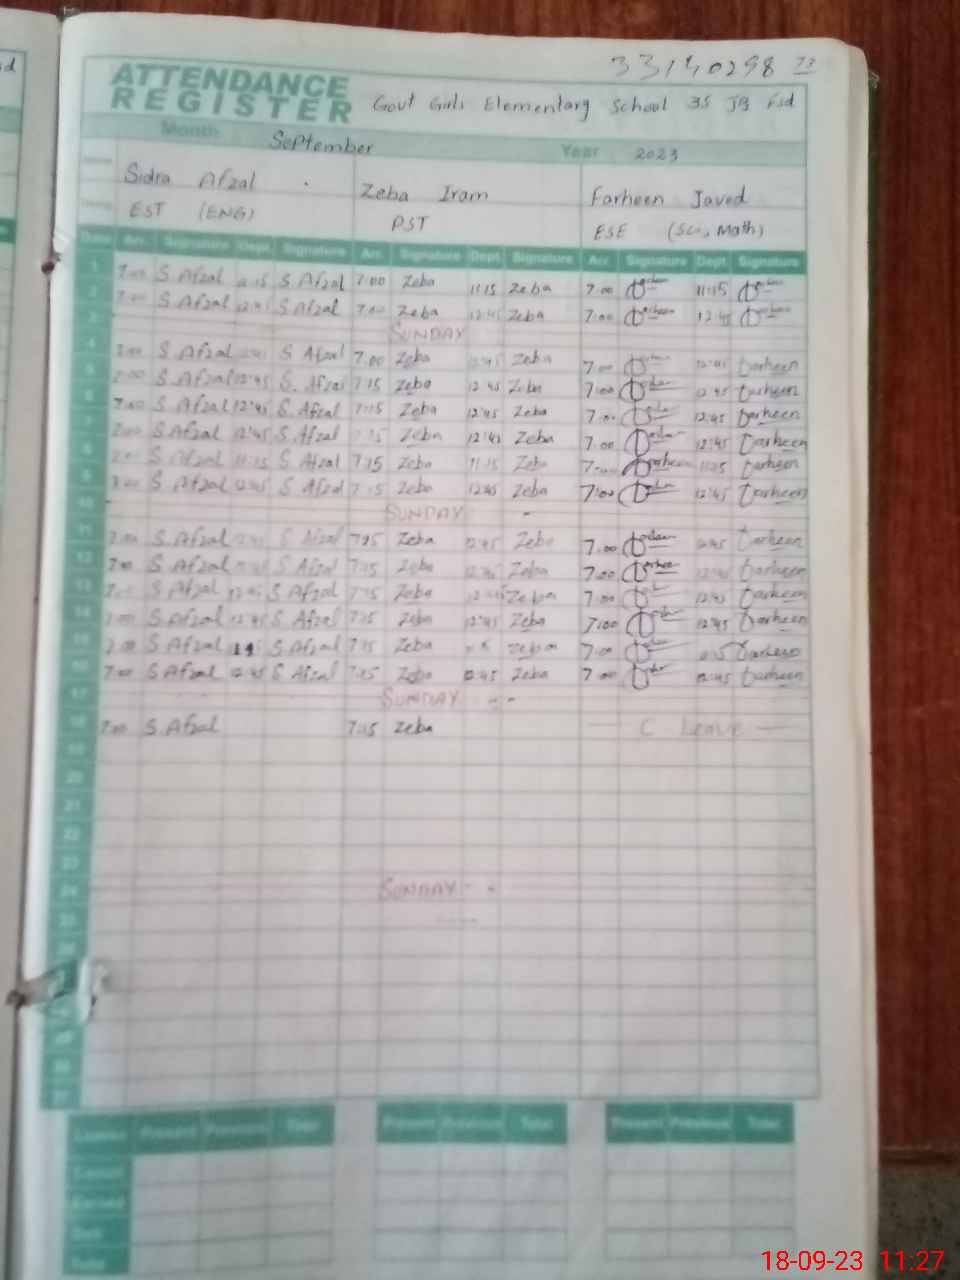 33140298 73
ATTENDANCE
REGISTER Govt Girls Elementary School 35 JB Fsd
Month September Year 2023
Sidra Afzal Zeba Iram Farheen Javed
EST (ENG) PST ESE (Sci, Math)
Date Arr. Signature Dept. Signature Arr. Signature Dept. Signature Arr. Signature Dept. Signature
1 7:00 S Afzal 11:15 S Afzal 7:00 Zeba 11:15 Zeba 7:00 11:15
2 7:00 S Afzal 12:45 S Afzal 7:00 Zeba 12:45 Zeba 7:00 12:45
3 SUNDAY
4 7:00 S Afzal 12:45 S Afzal 7:00 Zeba 12:45 Zeba 7:00 12:45 Farheen
5 7:00 S Afzal 12:45 S. Afzal 7:15 Zeba 12:45 Zeba 7:00 12:45 Farheen
6 7:00 S Afzal 12:45 S. Afzal 7:15 Zeba 12:45 Zeba 7:00 12:45 Farheen
7 7:00 S Afzal 12:45 S Afzal 7:15 Zeba 12:45 Zeba 7:00 12:45 Farheen
8 7:00 S Afzal 11:15 S Afzal 7:15 Zeba 11:15 Zeba 7:00 Farheen 11:15 Farheen
9 7:00 S Afzal 12:45 S Afzal 7:15 Zeba 12:45 Zeba 7:00 12:45 Farheen
10 SUNDAY -
11 7:00 S Afzal 12:45 S Afzal 7:15 Zeba 12:45 Zeba 7:00 12:45 Farheen
12 7:00 S Afzal S Afzal 7:15 Zeba 12:45 Zeba 7:00 12:45 Farheen
13 7:00 S Afzal 12:45 S Afzal 7:15 Zeba 12:45 Zeba 7:00 12:45 Farheen
14 7:00 S Afzal 12:45 S Afzal 7:15 Zeba 12:45 Zeba 7:00 12:45 Farheen
15 7:00 S Afzal S Afzal 7:15 Zeba Zeba 7:00 Farheen
16 7:00 S Afzal 12:45 S Afzal 7:15 Zeba 12:45 Zeba 7:00 12:45 Farheen
17 SUNDAY - -
18 7:00 S Afzal 7:15 Zeba C Leave
19
20
21
22
23
24 SUNDAY - -
25
26
29
30
31
Leaves Present Previous Total Present Previous Total Present Previous Total
Casual
Earned
Sick
Total
18-09-23 11:27